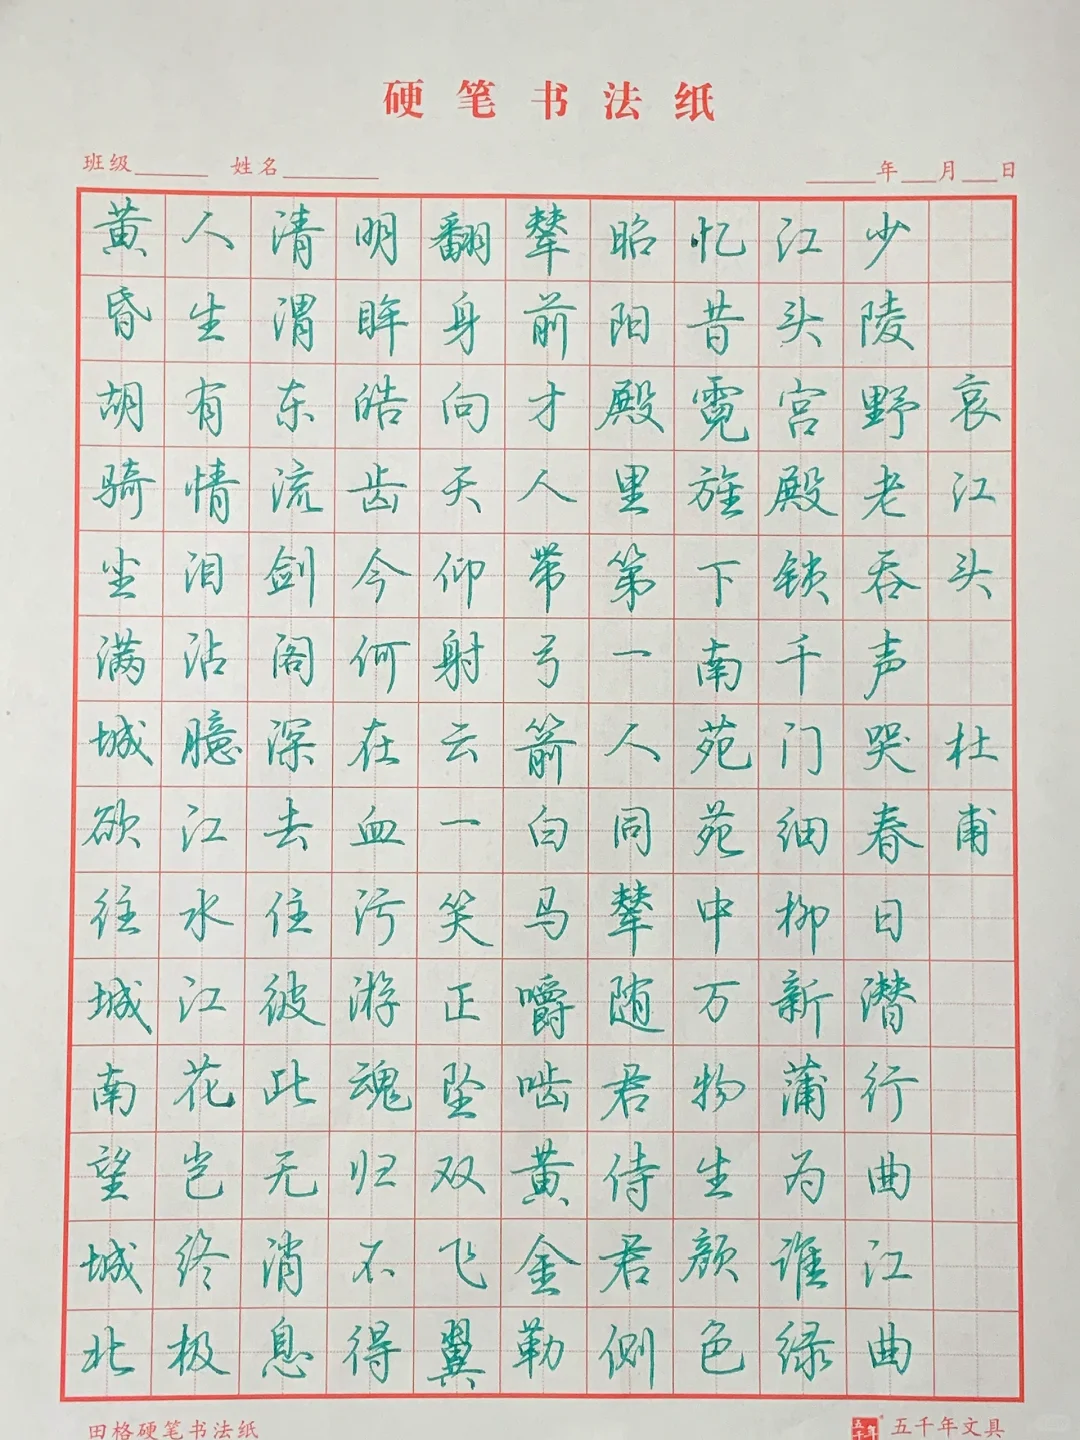 硬笔书法纸
班级 姓名 年 月 日
哀江头 杜甫
少陵野老吞声哭春日潜行曲江曲
江头宫殿锁千门细柳新蒲为谁绿
忆昔霓旌下南苑苑中万物生颜色
昭阳殿里第一人同辇随君侍君侧
辇前才人带弓箭白马嚼啮黄金勒
翻身向天仰射云一笑正坠双飞翼
明眸皓齿今何在血污游魂归不得
清渭东流剑阁深去住彼此无消息
人生有情泪沾臆江水江花岂终极
黄昏胡骑尘满城欲往城南望城北
田格硬笔书法纸 五千年 五千年文具